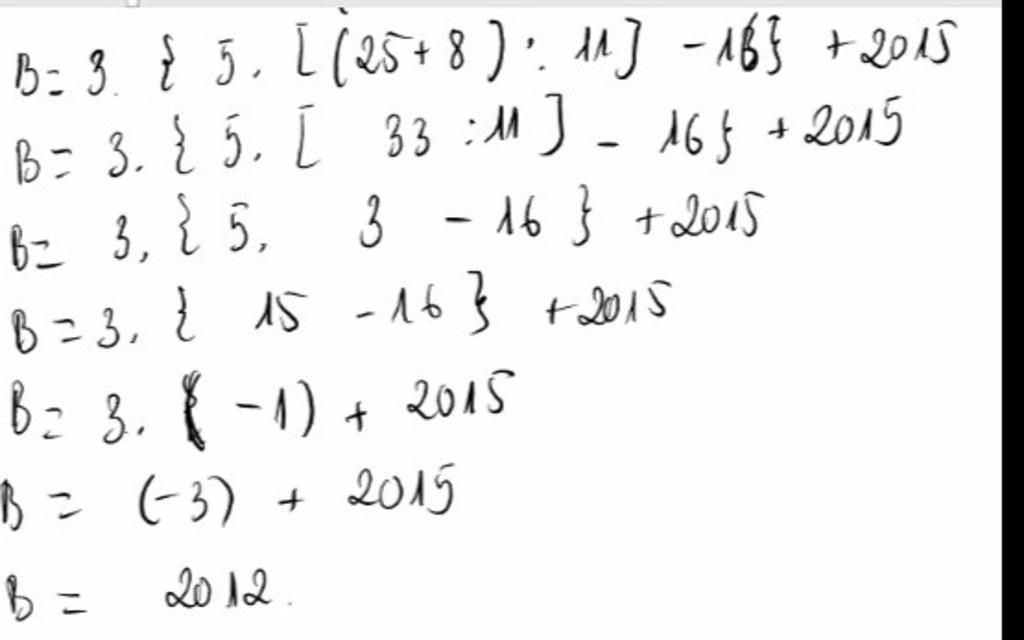 B = 3. { 5. [(25+8) : 11] - 16} + 2015
B = 3. { 5. [ 33 : 11 ] - 16} + 2015
B = 3. { 5. 3 - 16 } + 2015
B = 3. { 15 - 16 } + 2015
B = 3. ( -1) + 2015
B = (-3) + 2015
B = 2012.